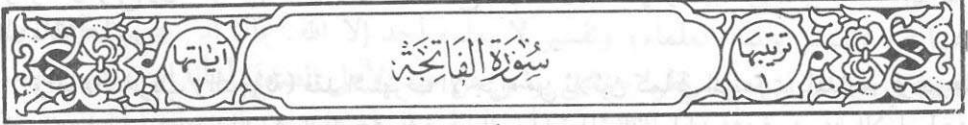 ترتيبها
١
سُورَةُ الفَاتِحَةِ
آياتها
٧